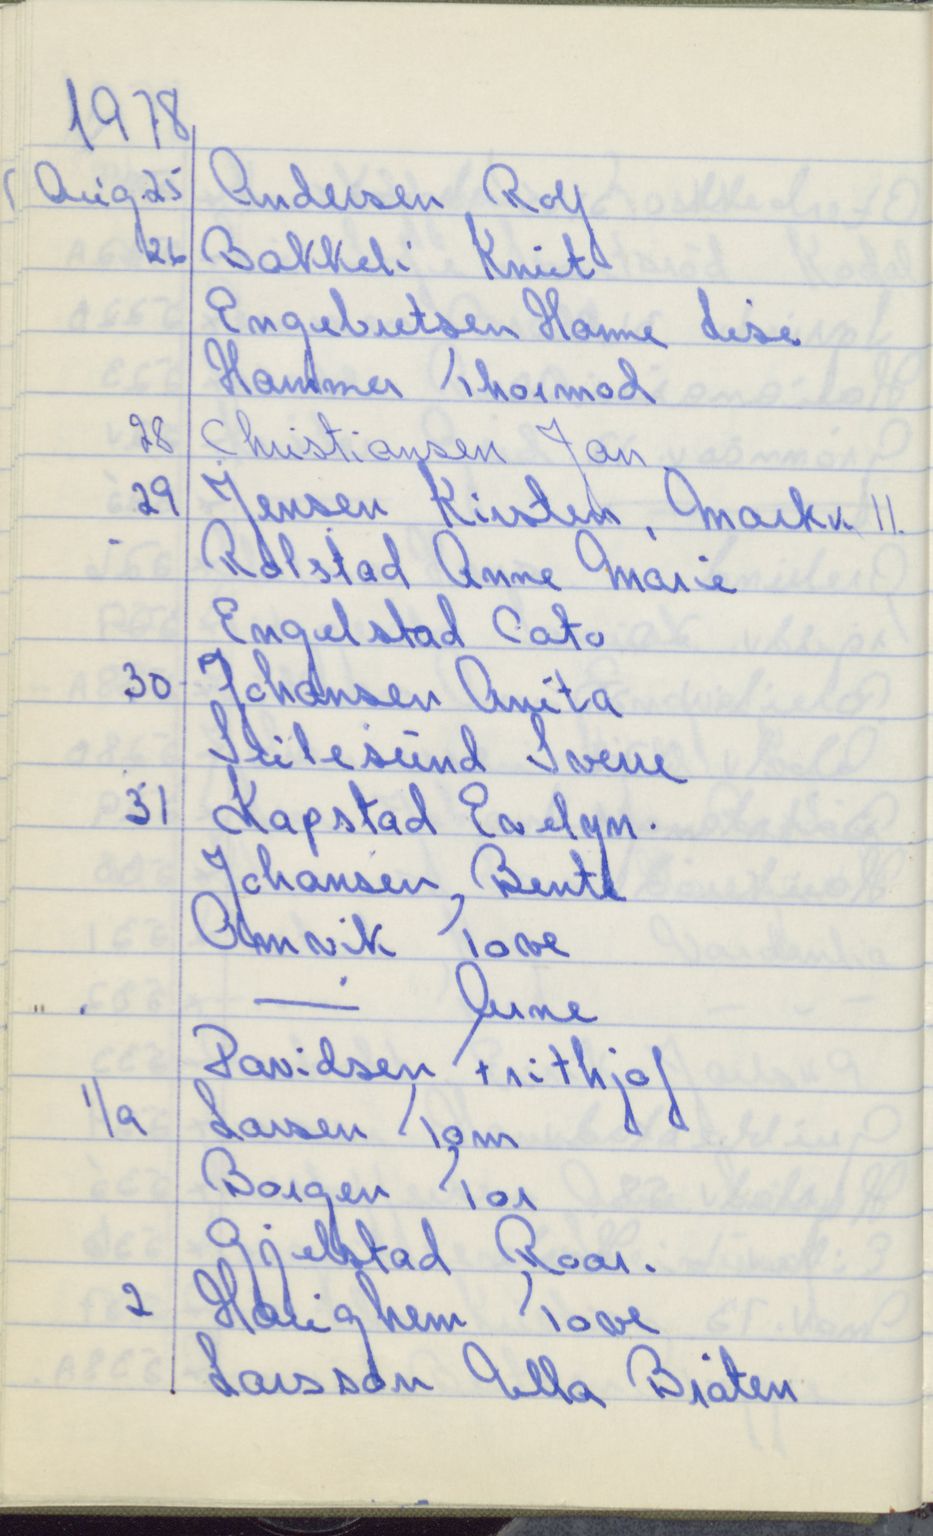 1978
Aug. 25 Andersen Roy
26 Bakkeli Knut
Engebretsen Hanne Lise
Hammer Thormod
28 Christiansen Jan
29 Jensen Kirsten, Markv. 11.
Rolstad Anne Marie
Engelstad Cato
30 Johansen Anita
Sverre
31 Kapstad Evelyn.
Johansen, Bente
Amvik Tove
" — June
Davidsen Frithjof
1/9 Larsen Tom
Borgen Tor
Gjelstad Roar.
2 Haughem Tove
Larsson Ella Bråten